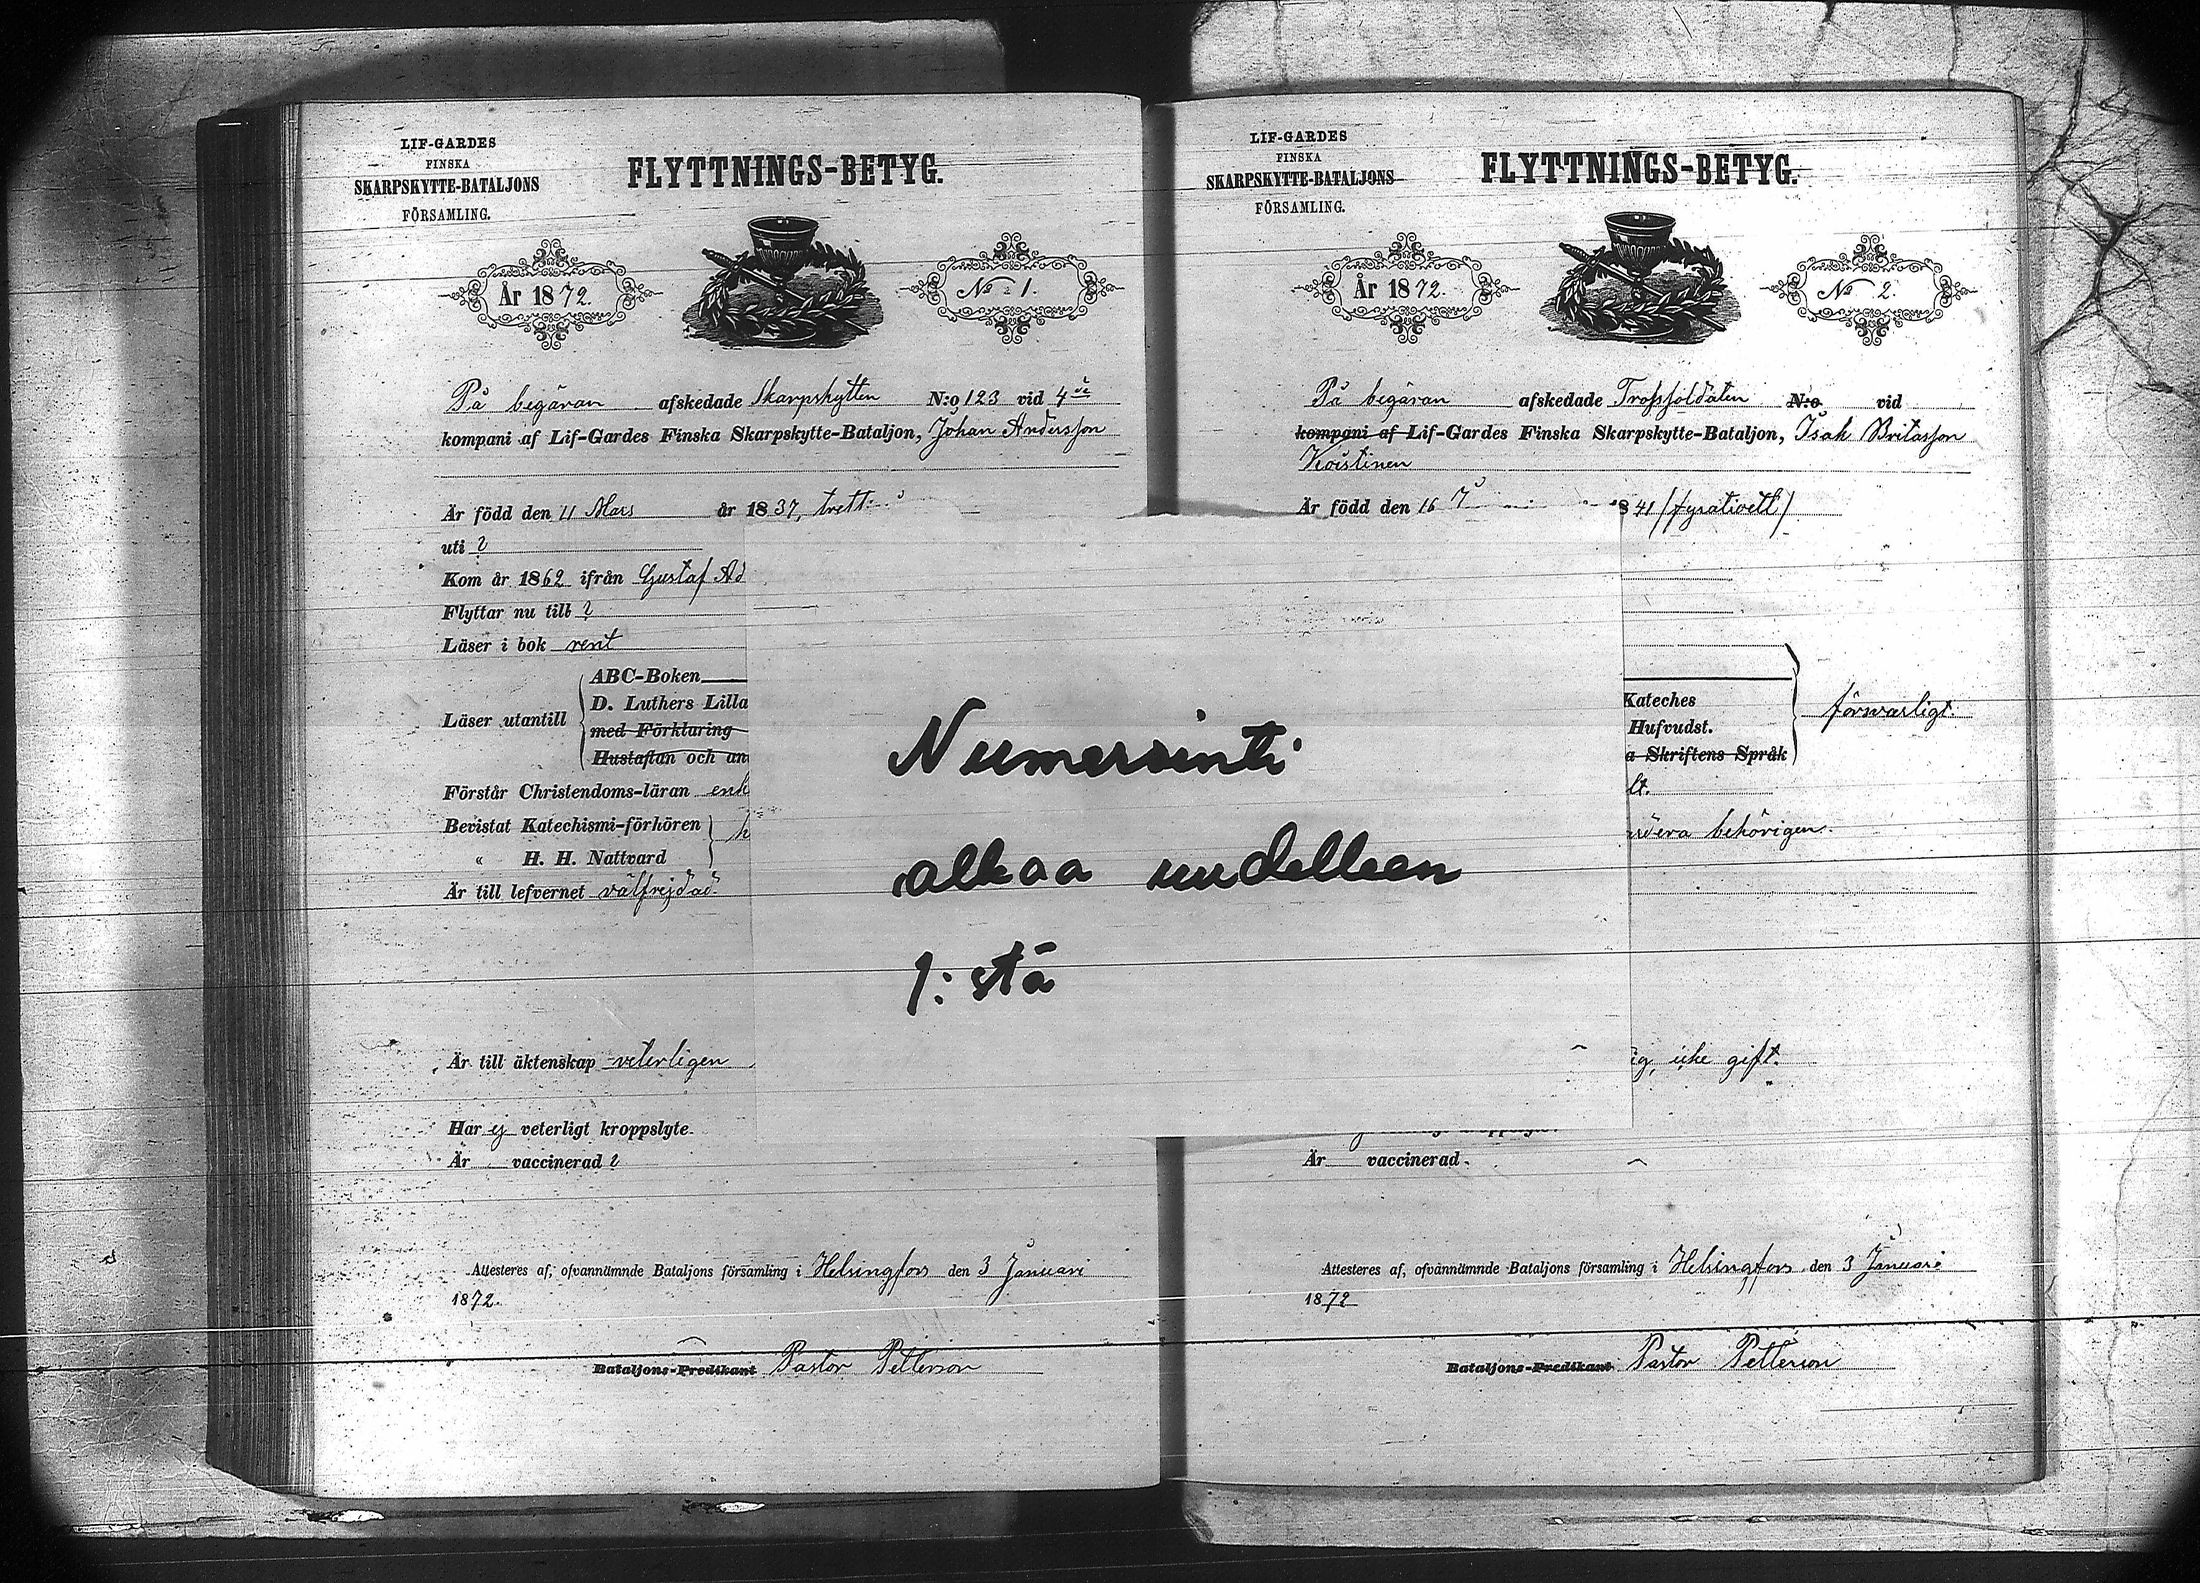 LIF-GARDES
FINSKA
SKARPSKYTTE-BATALJONS
FÖRSAMLING.
FLYTTNINGS-BETYG.
År 1872.
No 1.
På begäran afskedade Skarpskytten N:o 123 vid 4de
kompani af Lif-Gardes Finska Skarpskytte-Bataljon, Johan Andersson
Är född den 11 Mars år 1837, tretti
uti ?
Kom år 1862 ifrån Gustaf Ad
Flyttar nu till ?
Läser i bok rent
ABC-Boken
D. Luthers Lilla
Läser utantill
med Förklaring
Hustaflan och an
Förstår Christendoms-läran enk
Bevistat Katechismi-förhören
" H. H. Nattvard
Är till lefvernet välfrejdad.
Är till äktenskap veterligen
Har ej veterligt kroppslyte.
Är vaccinerad ?
Attesteres af, ofvannämnde Bataljons församling i Helsingfors den 3 Januari
1872.
Bataljons-Predikant Pastor Petterson
Numerointi
alkaa uudelleen
1:stä
LIF-GARDES
FINSKA
SKARPSKYTTE-BATALJONS
FÖRSAMLING.
FLYTTNINGS-BETYG.
År 1872.
No 2.
På begäran afskedade Trossoldaten N:o vid
kompani af Lif-Gardes Finska Skarpskytte-Bataljon, Isak Britasson
Koistinen
Är född den 16 841 (fyratioett)
Kateches
Hufvudst.
försvarligt.
a Skriftens Språk
lt.
behörigen.
ig, icke gift.
Är vaccinerad.
Attesteres af, ofvannämnde Bataljons församling i Helsingfors den 3 Januari
1872
Bataljons-Predikant Pastor Petterson